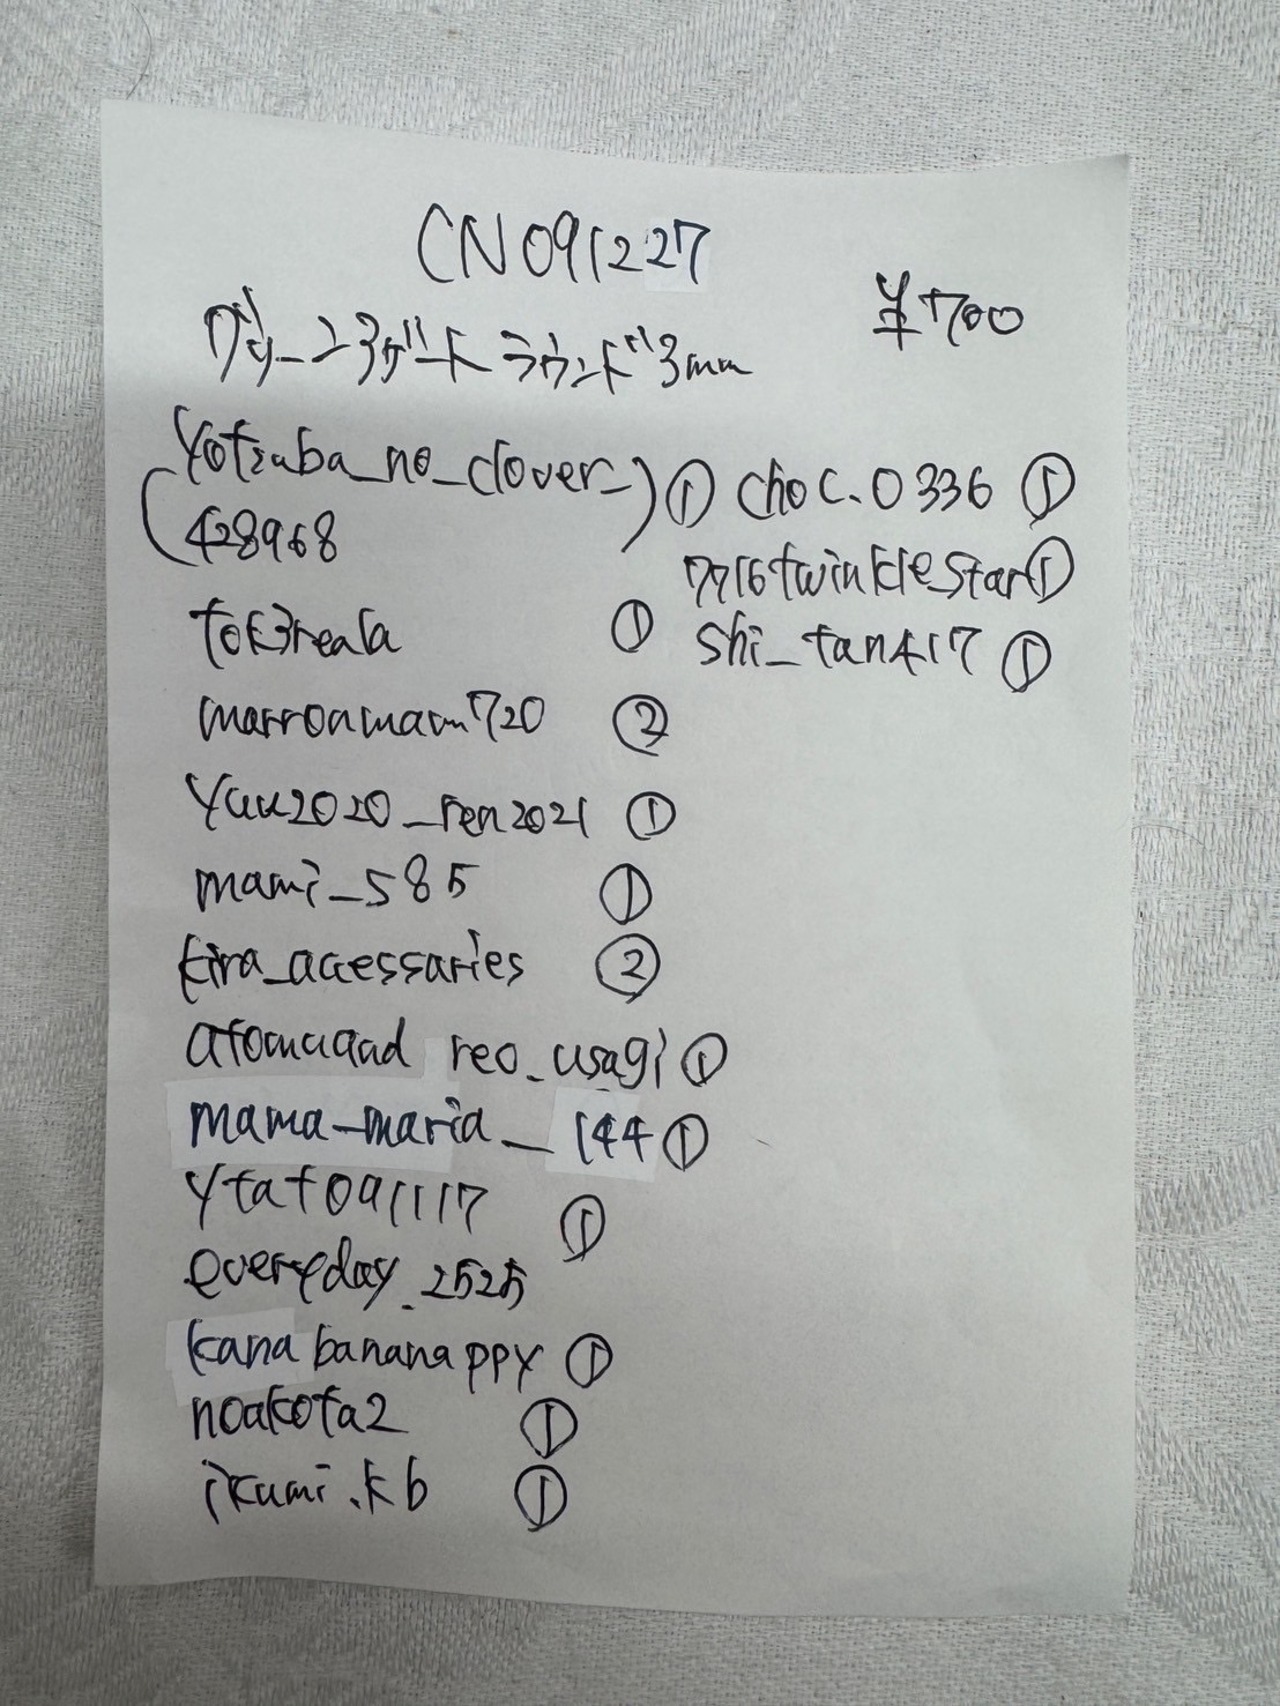 CN091227
¥700
グリーンアゲート ラウンド3mm
(yotsuba_no_clover_
428968) ①
tok3reala ①
marronmam720 ②
yuu2020_ren2021 ①
mami_585 ①
kira_acessaries ②
atomuand reo_usagi ①
mama_maria_144 ①
ytat091117 ①
everyday.2525
kanabananappy ①
noakota2 ①
ikumi.kb ①
choc.0336 ①
7716twinkle_star ①
shi_tan417 ①